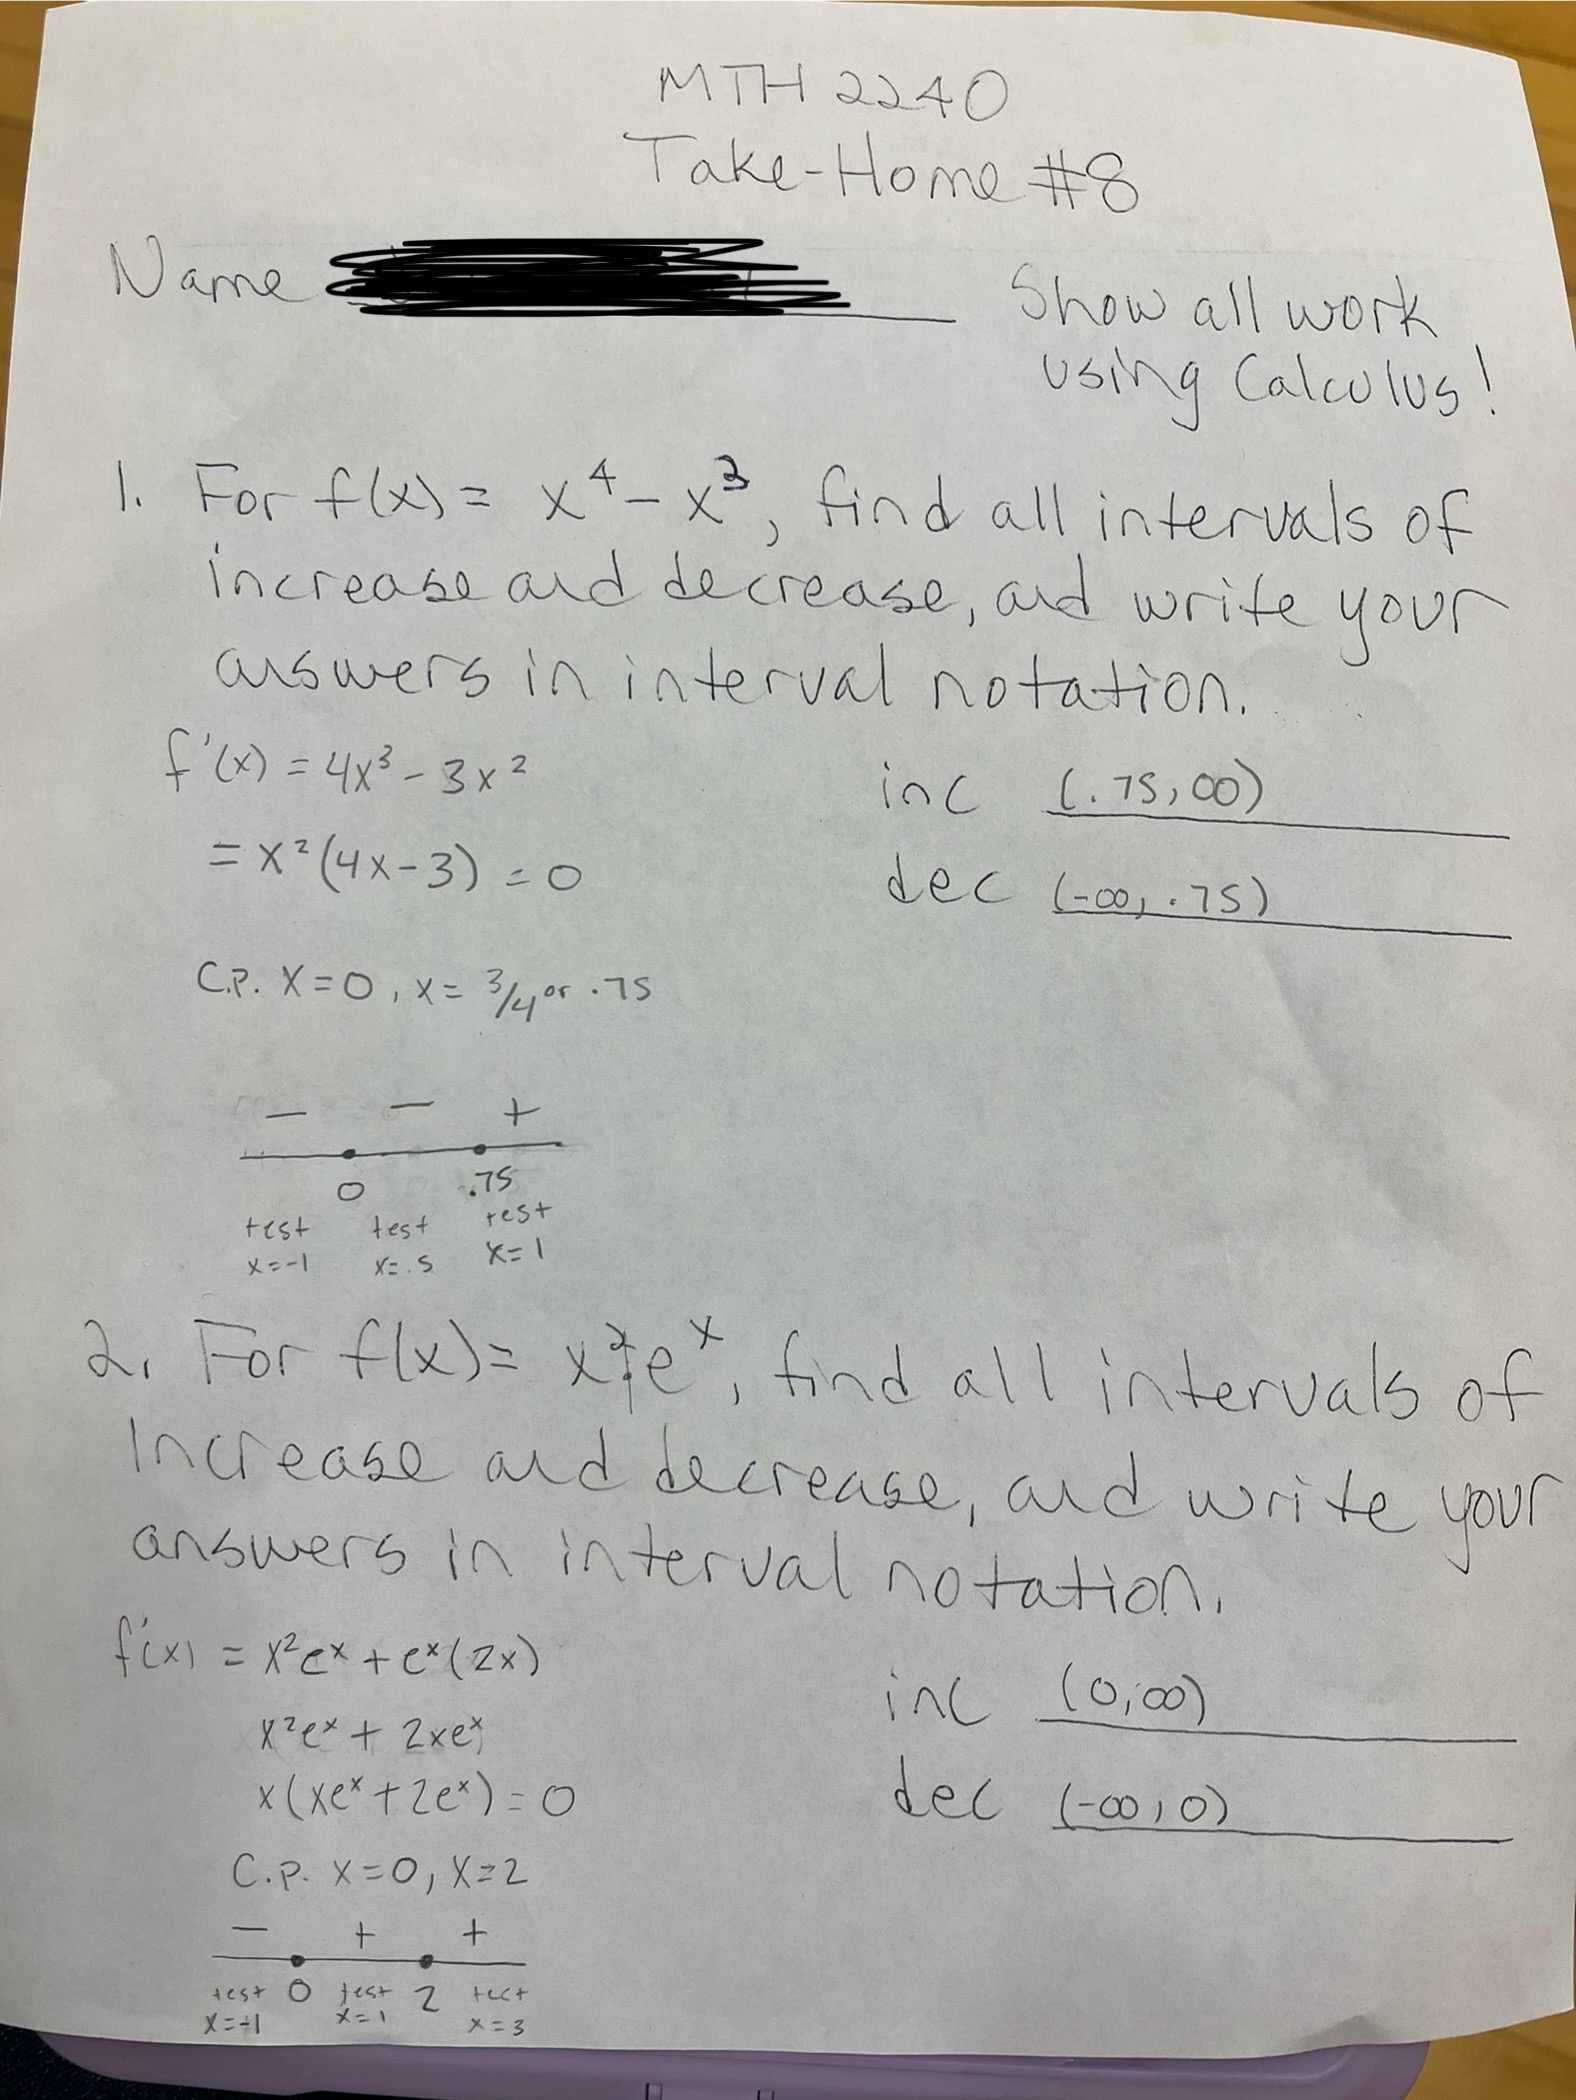 MTH 2240
Take-Home #8
Name
Show all work
using Calculus!
1. For f(x) = x⁴ - x³, find all intervals of
increase and decrease, and write your
answers in interval notation.
f'(x) = 4x³ - 3x²
inc (.75, ∞)
= x²(4x-3) = 0
dec (-∞, .75)
C.P. x=0, x= 3/4 or .75
— — +
0 .75
test test test
x=-1 x=.5 x=1
2. For f(x)= x²eˣ, find all intervals of
Increase and decrease, and write your
answers in interval notation.
f'(x) = x²eˣ + eˣ(2x)
inc (0, ∞)
x²eˣ + 2xeˣ
x(xeˣ + 2eˣ) = 0
dec (-∞, 0)
C.P. x=0, x=2
— + +
test 0 test 2 test
x=-1 x=1 x=3